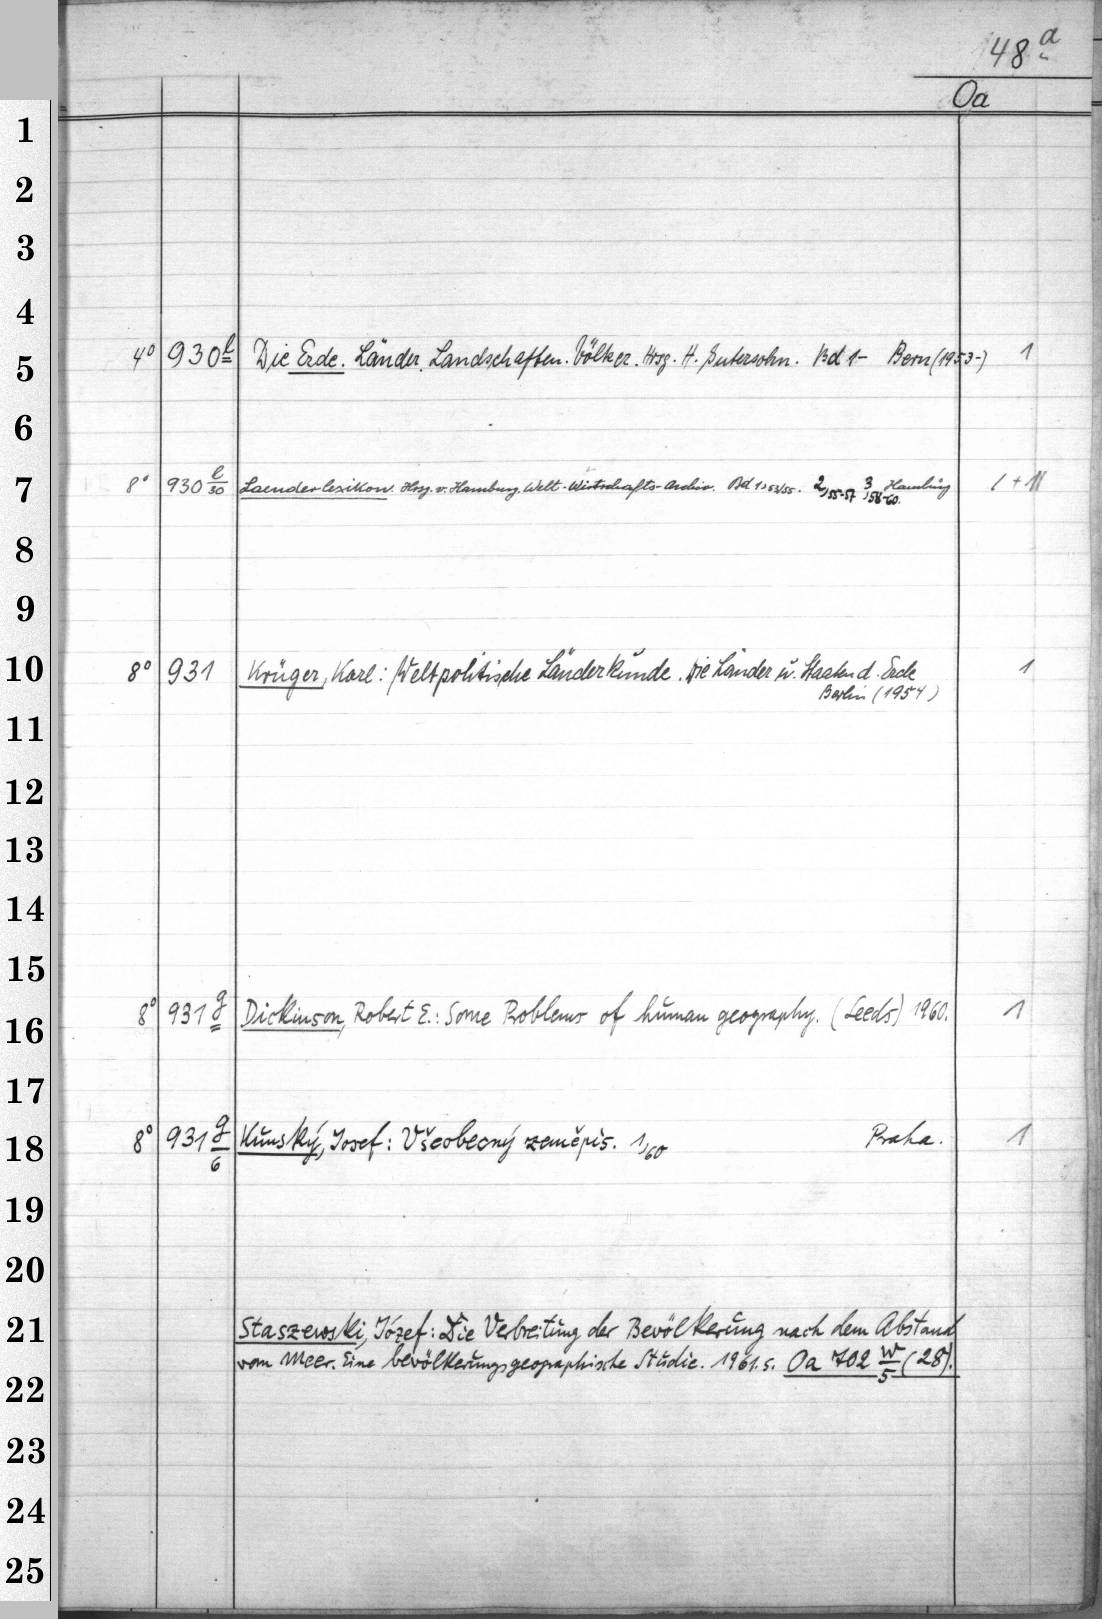 48 a
Oa
1
2
3
4
4° 930 l Die Erde. Länder, Landschaften. Völker. Hrsg. H. Gutersohn. Bd 1- Bern (1953-) 1
5
6
7 8° 930 l/30 Laenderlexikon. Hrsg. v. Hamburg. Welt-Wirtschafts-Archiv. Bd 1,53/55. 2,55-57 3,58-60. Hamburg
8
9
10 8° 931 Krüger, Karl: Weltpolitische Länderkunde. Die Länder u. Staaten d. Erde 1
Berlin (1954)
11
12
13
14
15
8° 931 g Dickinson, Robert E.: Some Problems of human geography. (Leeds) 1960. 1
16
17
18 8° 931 g/6 Kunský, Josef: Všeobecný zeměpis. 1,60 Praha. 1
19
20
21 Staszewski, Józef: Die Verbreitung der Bevölkerung nach dem Abstand
vom Meer. Eine bevölkerungsgeographische Studie. 1961. s. Oa 702 w/5 (28).
22
23
24
25